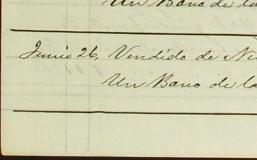 Un Bano de la
Junio 26, Vendido de Ni
Un Bano de la